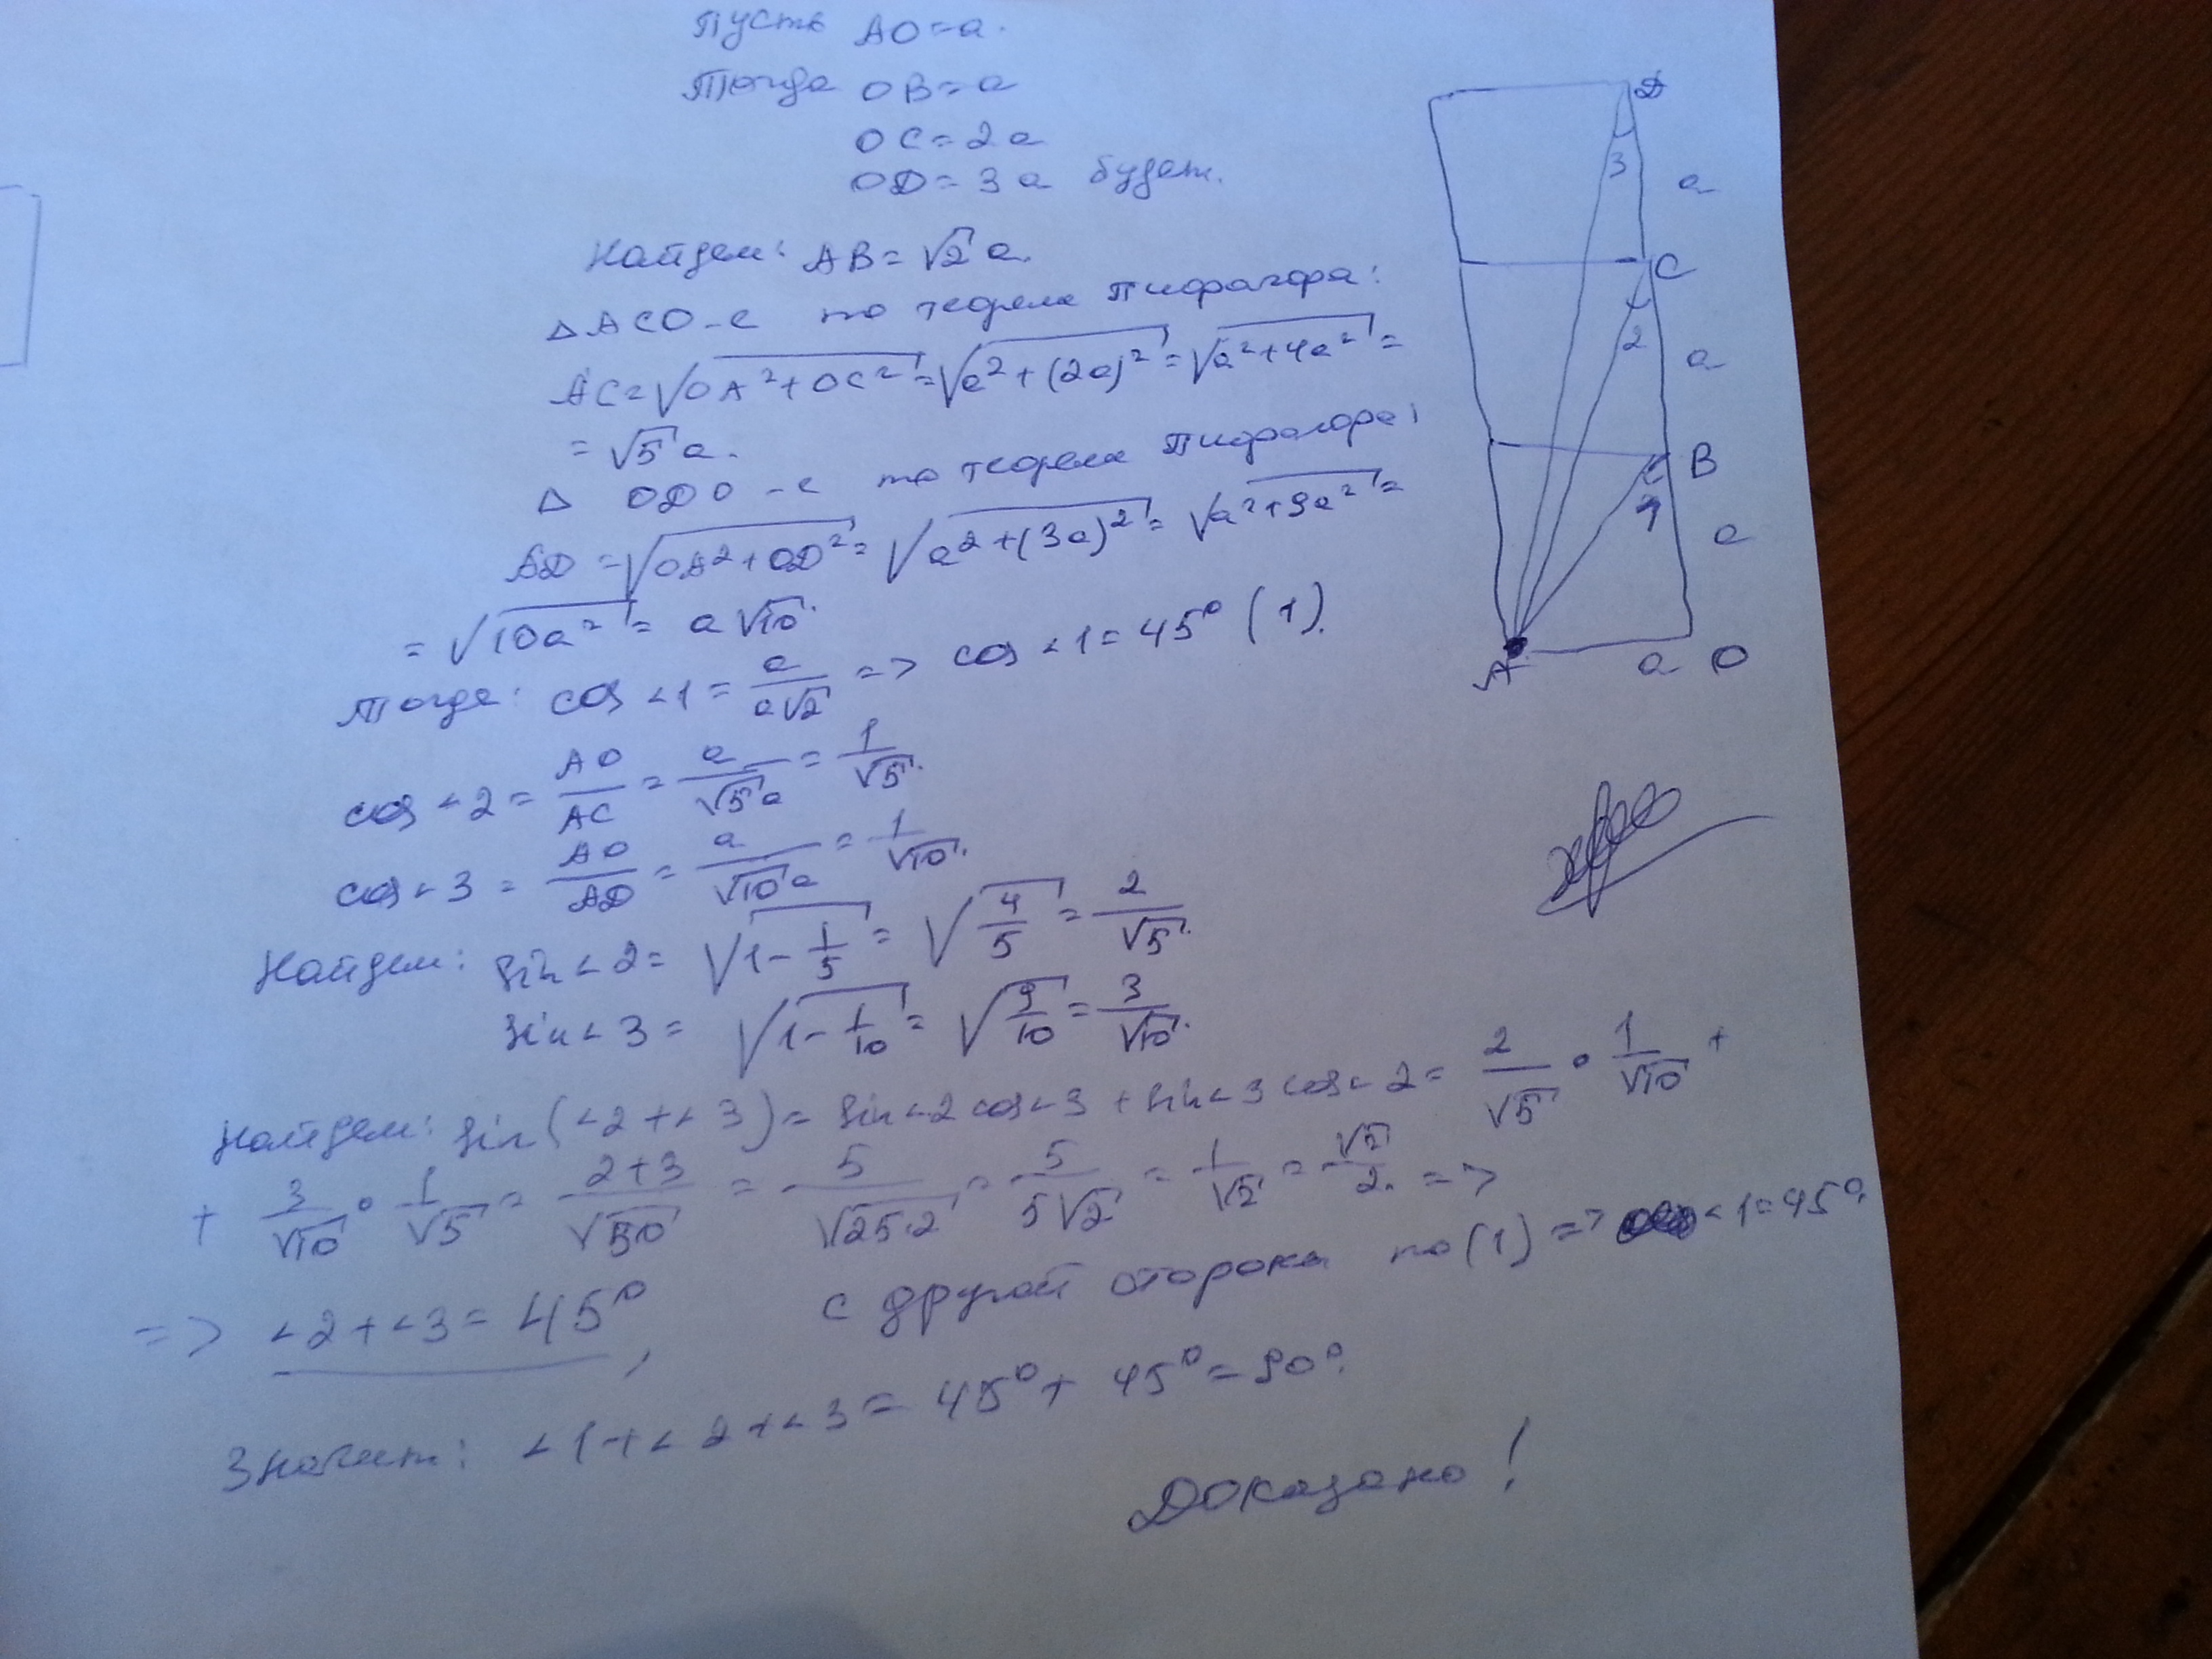 Пусть AO=a.
Тогда OB=a
OC=2a
OD=3a будет.
Найдем: AB=√2 a.
△ACO-с по теорема Пифагора:
AC=√(OA²+OC²)=√(a²+(2a)²)=√(a²+4a²)=
=√5 a.
△ ODO-с по теорема Пифагора:
AD=√(OA²+OD²)=√(a²+(3a)²)=√(a²+9a²)=
=√(10a²)=a√10.
Тогда: cos∠1=a/(a√2)=>cos∠1=45° (1).
cos∠2=AO/AC=a/(√5 a)=1/√5.
cos∠3=AO/AD=a/(√10 a)=1/√10.
Найдем: sin∠2=√(1-1/5)=√(4/5)=2/√5.
sin∠3=√(1-1/10)=√(9/10)=3/√10.
Найдем: sin(∠2+∠3)=sin∠2cos∠3+sin∠3cos∠2=2/√5·1/√10+
+3/√10·1/√5=(2+3)/√50=5/√(25·2)=5/(5√2)=1/√2=√2/2.=>
=>∠2+∠3=45°, с другой сторока по(1)=>∠1=45°.
Значит: ∠1+∠2+∠3=45°+45°=90°.
Доказано!
D
3
a
C
2
a
B
1
a
A
a
O